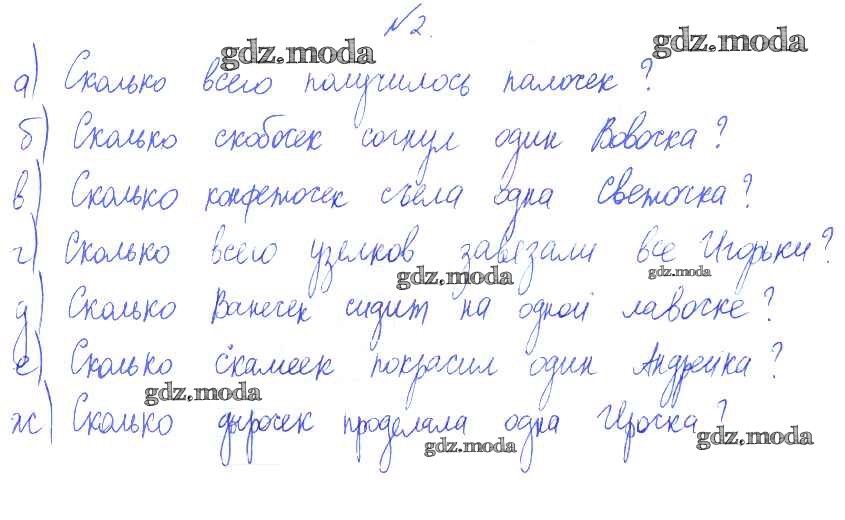 №2.
gdz.moda gdz.moda
а) Сколько всего получилось палочек?
б) Сколько скобочек согнул один Вовочка?
в) Сколько конфеточек съела одна Светочка?
г) Сколько всего узелков завязали все Игорьки?
gdz.moda gdz.moda
д) Сколько Ванечек сидит на одной лавочке?
е) Сколько скамеек покрасил один Андрейка?
gdz.moda
ж) Сколько дырочек проделала одна Ирочка?
gdz.moda gdz.moda